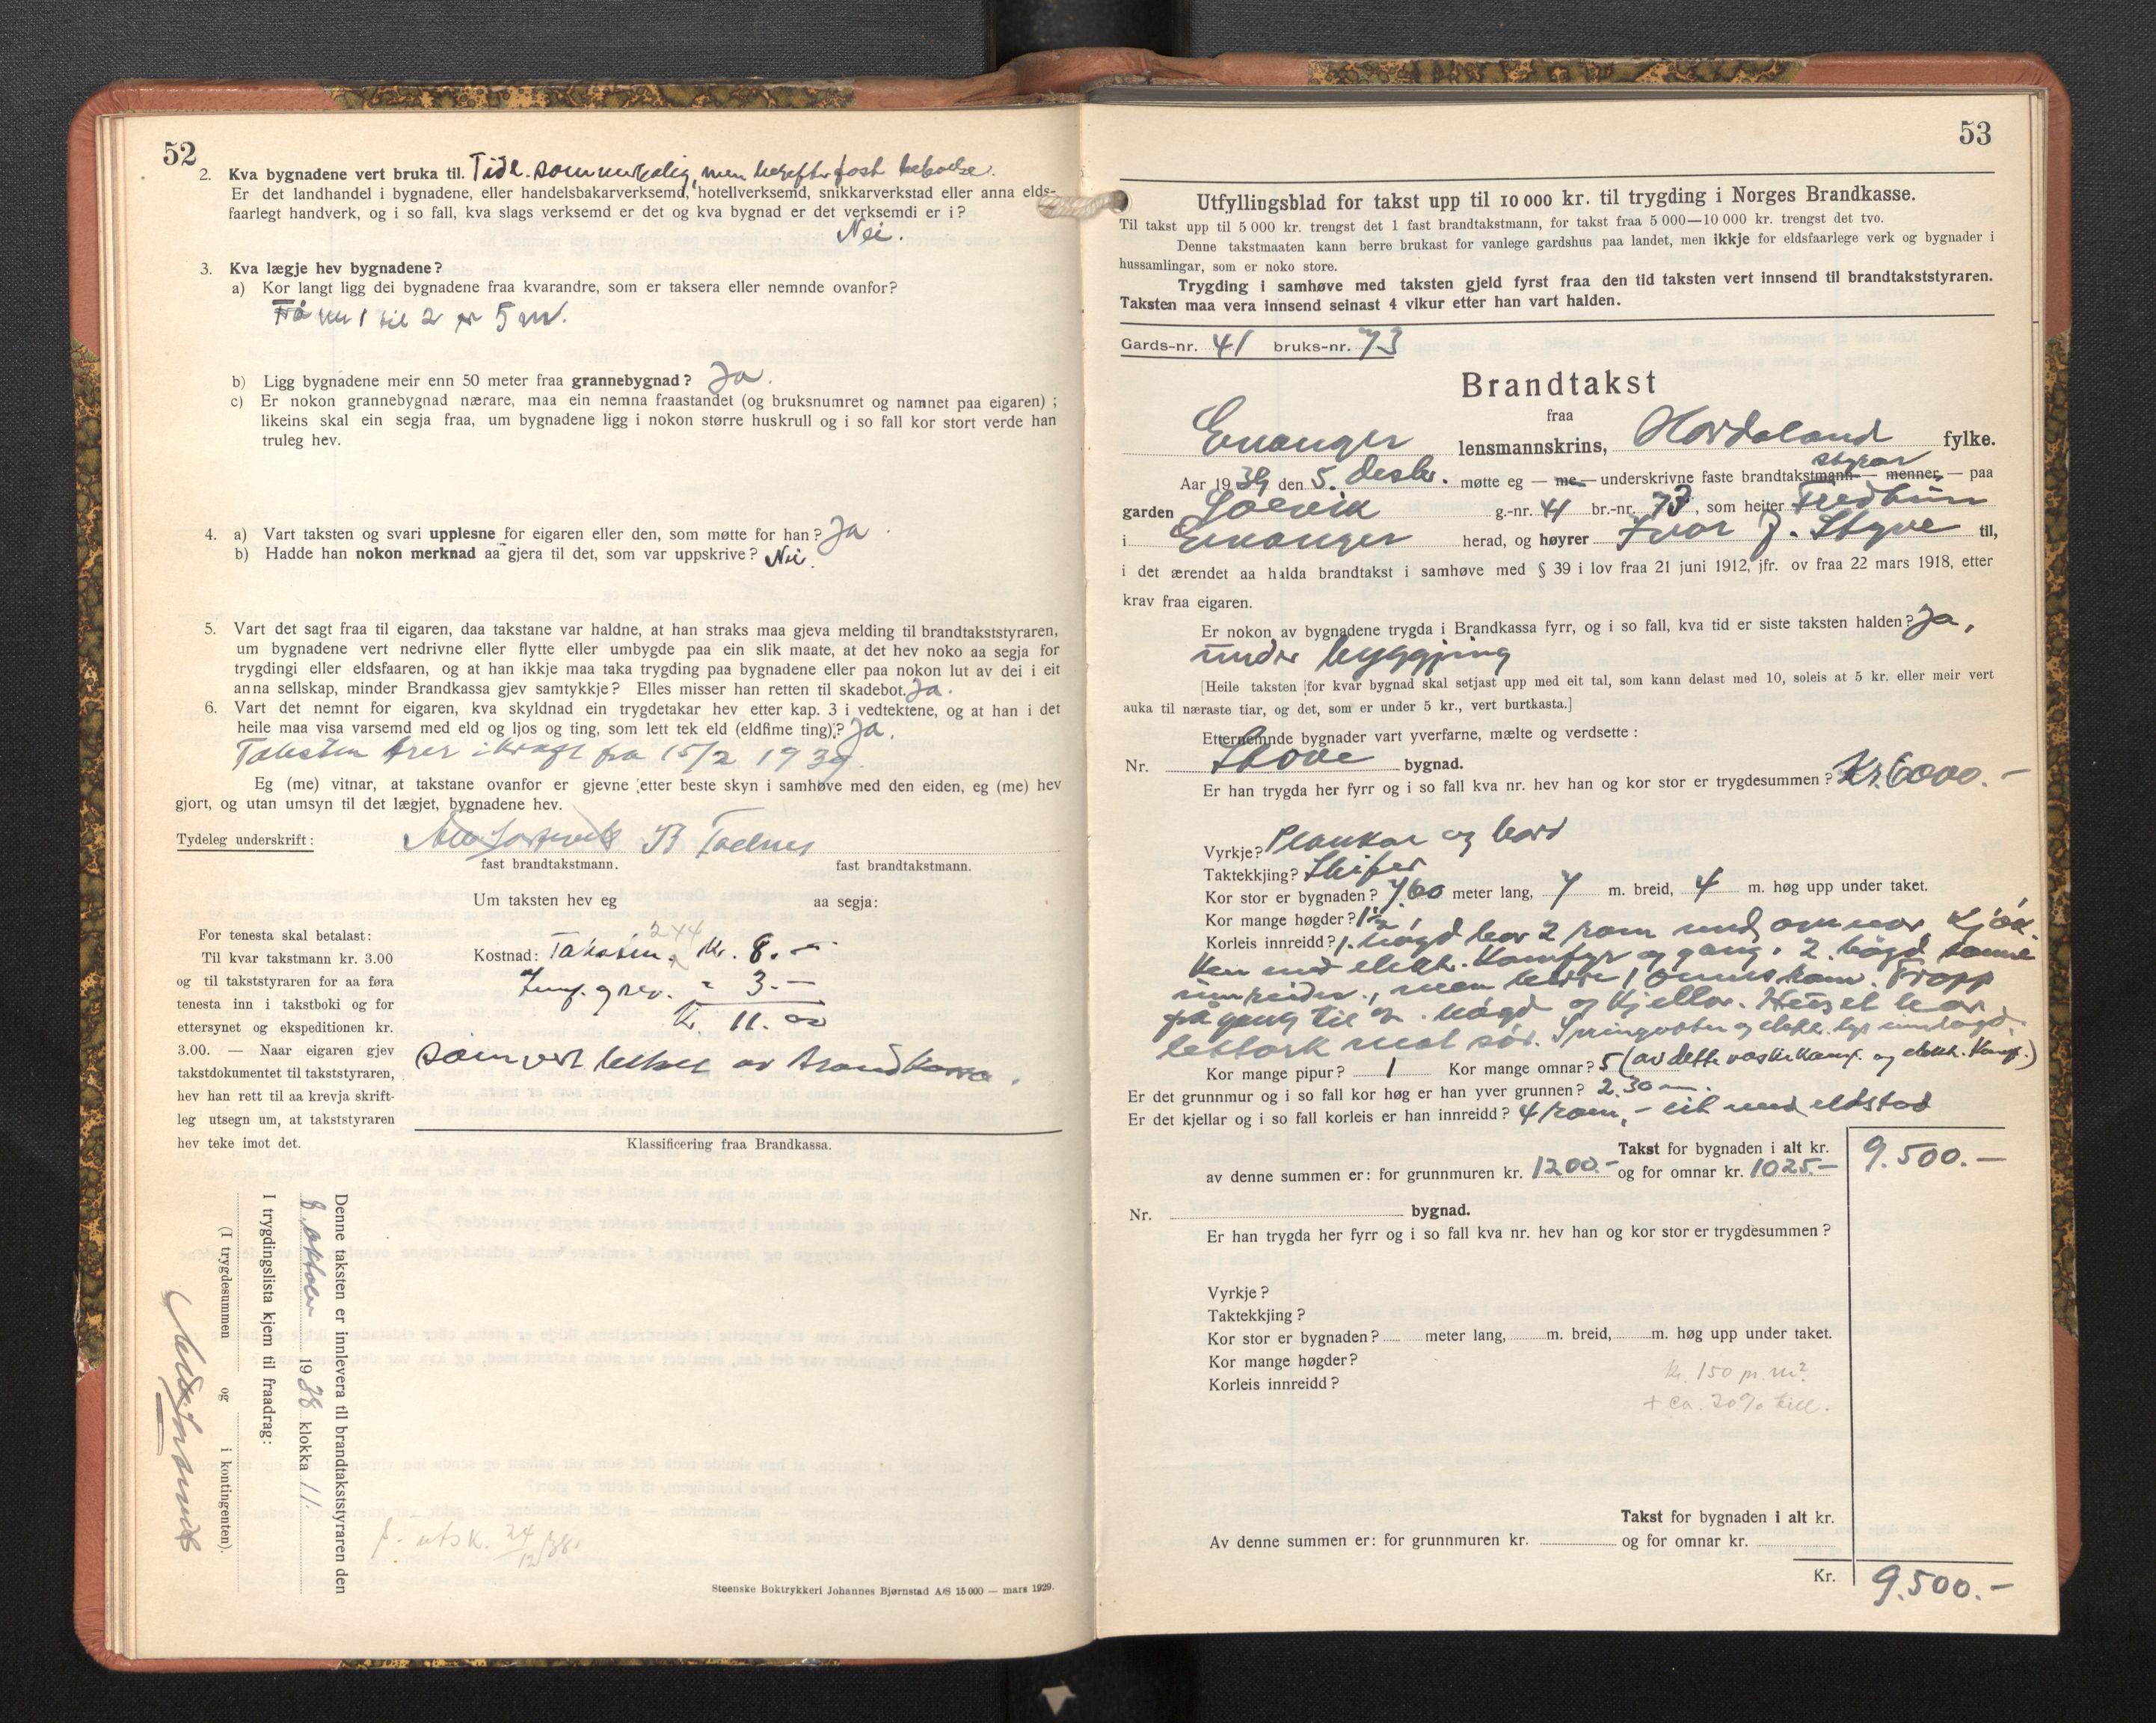 52
2. Kva bygnadene vert bruka til. Tidl. sommerbolig, men herefter fast
Er det landhandel i bygnadene, eller handelsbakarverksemd, hotellverksemd, snikkarverkstad eller anna elds-
faarlegt handverk, og i so fall, kva slags verksemd er det og kva bygnad er det verksemdi er i?
Nei.
3. Kva lægje hev bygnadene?
a) Kor langt ligg dei bygnadene fraa kvarandre, som er taksera eller nemnde ovanfor?
Frå nr 1 til 2 er 5 m.
b) Ligg bygnadene meir enn 50 meter fraa grannebygnad? Ja.
c) Er nokon grannebygnad nærare, maa ein nemna fraastandet (og bruksnumret og namnet paa eigaren);
likeins skal ein segja fraa, um bygnadene ligg i nokon større huskrull og i so fall kor stort verde han
truleg hev.
4. a) Vart taksten og svari upplesne for eigaren eller den, som møtte for han? Ja
b) Hadde han nokon merknad aa gjera til det, som var uppskrive? Nei.
5. Vart det sagt fraa til eigaren, daa takstane var haldne, at han straks maa gjeva melding til brandtakststyraren,
um bygnadene vert nedrivne eller flytte eller umbygde paa ein slik maate, at det hev noko aa segja for
trygdingi eller eldsfaaren, og at han ikkje maa taka trygding paa bygnadene eller paa nokon lut av dei i eit
anna sellskap, minder Brandkassa gjev samtykkje? Elles misser han retten til skadebot. Ja.
6. Vart det nemnt for eigaren, kva skyldnad ein trygdetakar hev etter kap. 3 i vedtektene, og at han i det
heile maa visa varsemd med eld og ljos og ting, som lett tek eld (eldfime ting)? Ja.
Taksten trer i kraft fra 15/2 1939.
Eg (me) vitnar, at takstane ovanfor er gjevne etter beste skyn i samhøve med den eiden, eg (me) hev
gjort, og utan umsyn til det lægjet, bygnadene hev.
Tydeleg underskrift: B
fast brandtakstmann. fast brandtakstmann.
Um taksten hev eg aa segja:
For tenesta skal betalast:
Til kvar takstmann kr. 3.00
og til takststyraren for aa føra
tenesta inn i takstboki og for
ettersynet og ekspeditionen kr.
3.00. — Naar eigaren gjev
takstdokumentet til takststyraren,
hev han rett til aa krevja skrift-
leg utsegn um, at takststyraren
hev teke imot det.
2 x 4
Kostnad: Taksten kr. 8.—
" 3.—
Kr. 11.00
som vert betalt av brandkassa.
Klassificering fraa Brandkassa.
Denne taksten er innlevera til brandtakststyraren den
8. oktober 1938 klokka 11.
I trygdingslista kjem til fraadrag:
(I trygdesummen og i kontingenten).
f. utsk. 24/12 38.
Steenske Boktrykkeri Johannes Bjørnstad A/S 15 000 — mars 1929.
53
Utfyllingsblad for takst upp til 10 000 kr. til trygding i Norges Brandkasse.
Til takst upp til 5 000 kr. trengst det 1 fast brandtakstmann, for takst fraa 5 000—10 000 kr. trengst det tvo.
Denne takstmaaten kann berre brukast for vanlege gardshus paa landet, men ikkje for eldsfaarlege verk og bygnader i
hussamlingar, som er noko store.
Trygding i samhøve med taksten gjeld fyrst fraa den tid taksten vert innsend til brandtakststyraren.
Taksten maa vera innsend seinast 4 vikur etter han vart halden.
Gards-nr. 41 bruks-nr. 73
Brandtakst
fraa
Evanger lensmannskrins, Hordaland fylke.
styrar
Aar 1939 den 5. desbr. møtte eg — me — underskrivne faste brandtakstmann — menner, — paa
garden g.-nr. 41 br.-nr. 73, som heiter Fredbun
i Evanger herad, og høyrer Ivar J. Styve til,
i det ærendet aa halda brandtakst i samhøve med § 39 i lov fraa 21 juni 1912, jfr. ov fraa 22 mars 1918, etter
krav fraa eigaren.
Er nokon av bygnadene trygda i Brandkassa fyrr, og i so fall, kva tid er siste taksten halden? Ja,
under byggjing
[Heile taksten for kvar bygnad skal setjast upp med eit tal, som kann delast med 10, soleis at 5 kr. eller meir vert
auka til næraste tiar, og det, som er under 5 kr., vert burtkasta.]
Etternemnde bygnader vart yverfarne, mælte og verdsette:
Nr. Stove bygnad.
Er han trygda her fyrr og i so fall kva nr. hev han og kor stor er trygdesummen? Kr. 6000.—
Vyrkje? Plankar og bord
Taktekkjing? Skifer
Kor stor er bygnaden? 7,60 meter lang, 7 m. breid, 4 m. høg upp under taket.
Kor mange høgder? 1½
Korleis innreidd? 1. høgd har 2 rom med omnar, kjøk-
ken med elektr. komfyr og gang. 2. høgd same
innreiing, men berre 1 omns rom. Tropp
på gang til 2. høgd og kjellar. Huset har
mot sør. Springvatn og elektr. lys innlagd.
Kor mange pipur? 1 Kor mange omnar? 5 (av dette vaskekamf. og elektr. komf.)
Er det grunnmur og i so fall kor høg er han yver grunnen? 2.30 m.
Er det kjellar og i so fall korleis er han innreidd? 4 rom, - eit med eldstad
Takst for bygnaden i alt kr. 9.500.—
av denne summen er: for grunnmuren kr. 1200.— og for omnar kr. 1025.—
Nr. bygnad.
Er han trygda her fyrr og i so fall kva nr. hev han og kor stor er trygdesummen?
Vyrkje?
Taktekkjing?
Kor stor er bygnaden? meter lang, m. breid, m. høg upp under taket.
Kor mange høgder?
Korleis innreidd?
kr. 150 pr. m².
+ ca. 20% till.
Takst for bygnaden i alt kr.
Av denne summen er: for grunnmuren kr. og for omnar kr.
Kr. 9.500.—